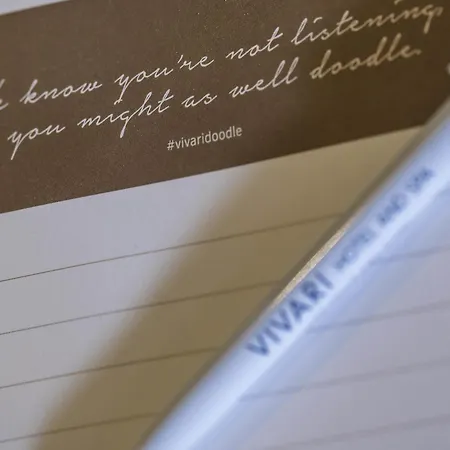 know you're not listening,
you might as well doodle.
#vivaridoodle
VIVARI HOTEL AND SPA